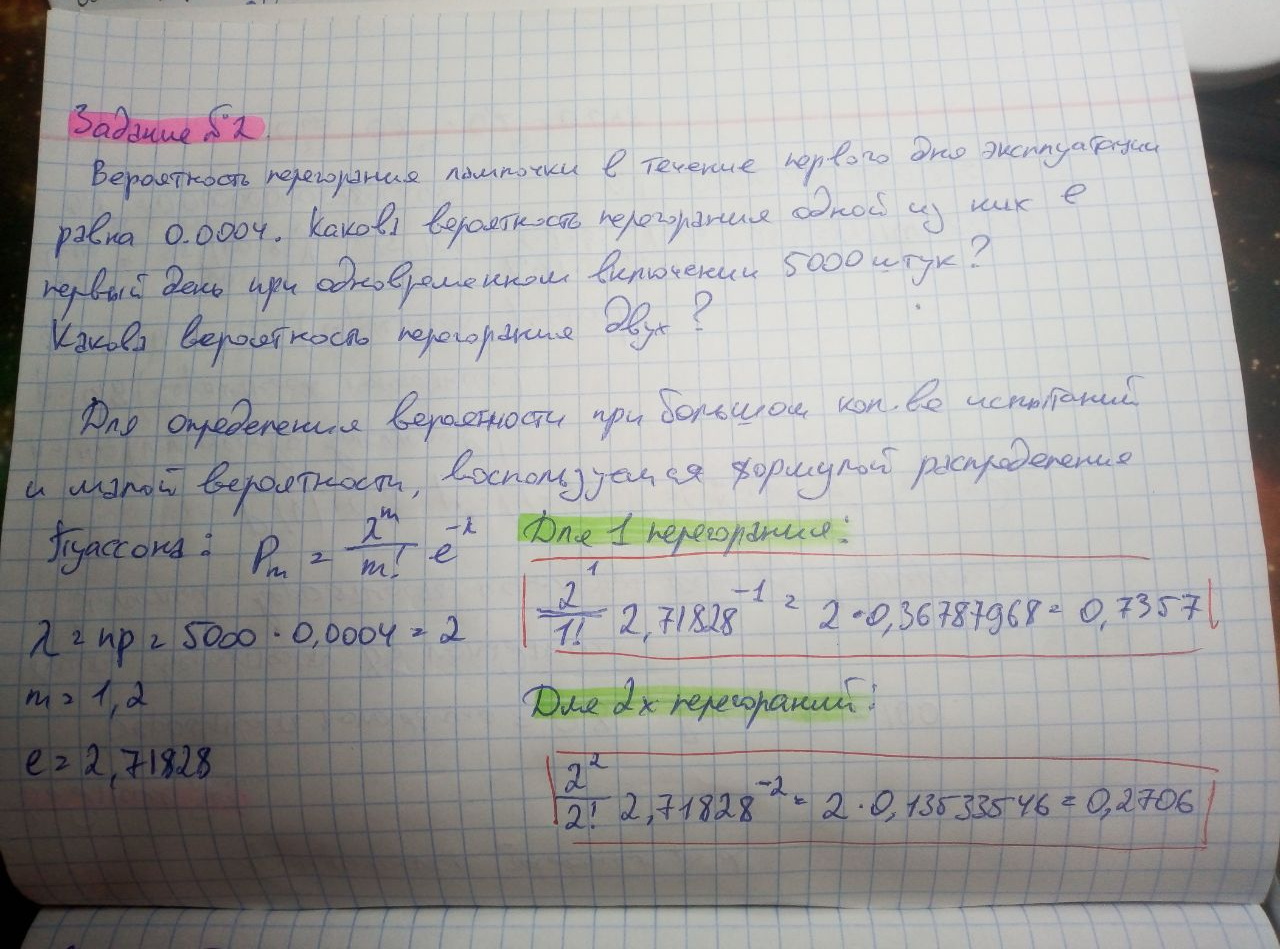 Задание №2.
Вероятность перегорания лампочки в течение первого дня эксплуатации
равна 0.0004. Какова вероятность перегорания одной из них в
первый день при одновременном включении 5000 штук?
Какова вероятность перегорания двух?
Для определения вероятности при большом кол.ве испытаний
и малой вероятности, воспользуемся формулой распределения
Пуассона: Pm = λ^m/m! e^-λ
λ = np = 5000 · 0,0004 = 2
m = 1,2
e = 2,71828
Для 1 перегорания:
2^1/1! 2,71828^-1 = 2 · 0,36787968 = 0,7357
Для 2х перегораний:
2^2/2! 2,71828^-2 = 2 · 0,13533546 = 0,2706